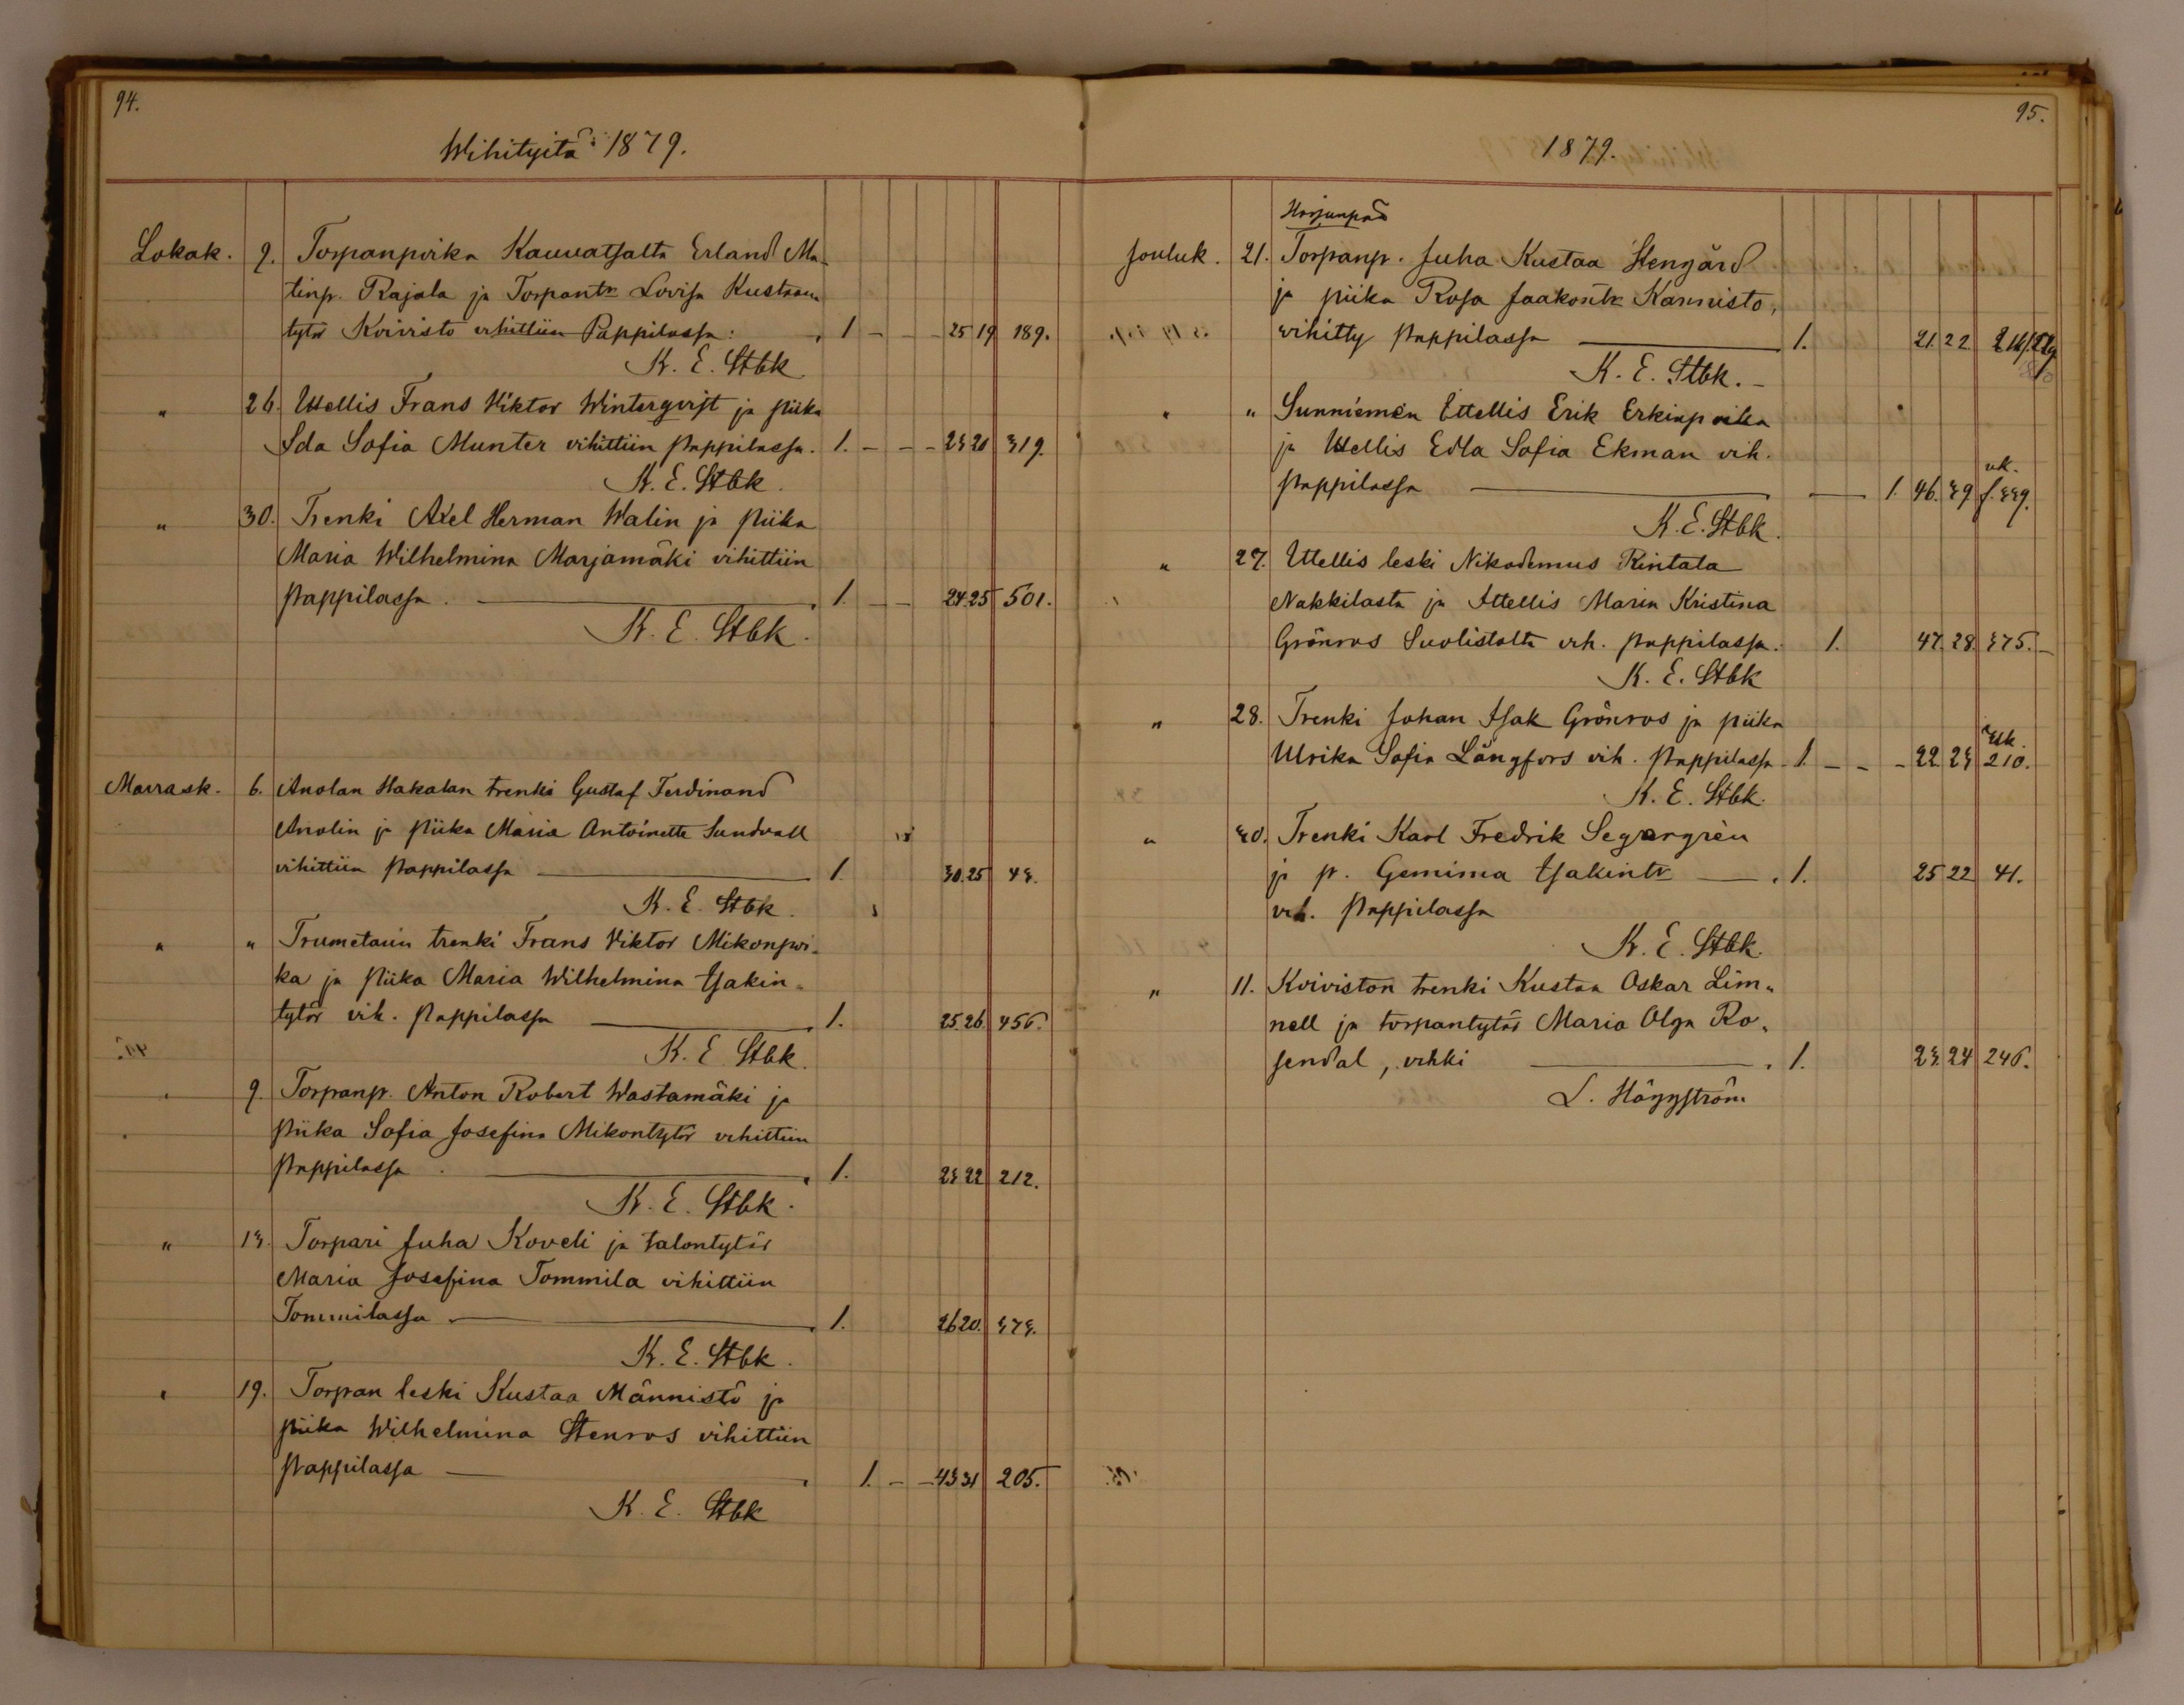 94.
Wihityitä 1879.
Lokak. 9. Torpanpoika Kauvatsalta Erland Ma-
tinp. Rajala ja Torpantr Lovisa Kustaan
tytör Koivisto vihittiin Pappilassa: 1 - - - 25 19 189.
K. E. Stbk
" 26. Ittellis Frans Viktor Winterqvist ja piika
Ida Sofia Munter vihittiin pappilassa. 1. - - - 23 21 319.
K. E. Stbk.
" 30. Trenki Axel Herman Walin ja piika
Maria Wilhelmina Marjamäki vihittiin
pappilassa. 1. - - 24. 25 501.
K. E. Stbk.
Marrask. 6. Anolan Hakalan trenki Gustaf Ferdinand
Anolin ja piika Maria Antoinette Sundvall
vihittiin pappilassa 1. 30. 25 43.
K. E. Stbk.
" " Trumetarin trenki Frans Viktor Mikonpoi-
ka ja piika Maria Wilhelmina Isakin-
tytör vih. pappilassa 1. 25. 26. 456.
K. E. Stbk.
" 9. Torpanp. Anton Robert Wastamäki ja
piika Sofia Josefina Mikontytör vihittiin
pappilassa 1. 23 22 212.
K. E. Stbk.
" 13. Torpari Juha Koveli ja talontytör
Maria Josefina Tommila vihittiin
Tommilassa 1. 26 20. 373.
K. E. Stbk.
" 19. Torpan leski Kustaa Männistö ja
piika Wilhelmina Stenros vihittiin
pappilassa 1. - - 43 31 205.
K. E. Stbk
95.
1879.
Harjunpää
Jouluk. 21. Torpanp. Juha Kustaa Stengård
ja piika Rosa Jaakontr Kannisto,
vihitty pappilassa 1. 21. 22.
K. E. Stbk. -
" " Sunniemen Ittellis Erik Erkinpoika
ja Ittellis Edla Sofia Ekman vih.
uk.
pappilassa 1. 46. 39 f. 339.
K. E. Stbk.
" 27. Ittellis leski Nikodemus Rintala
Nakkilasta ja Ittellis Maria Kristina
Grönros Suolistolta vih. pappilassa. 1. 47. 28. 375. -
K. E. Stbk
" 28. Trenki Johan Isak Grönros ja piika
Ulrika Sofia Långfors vih. pappilassa 1. - - - 22. 23 210.
K. E. Stbk.
" 30. Trenki Karl Fredrik Segergrén
ja p. Gemima Isakintr 1. 25 22 41.
vih. pappilassa
K. E. Stbk.
" 11. Koiviston trenki Kustaa Oskar Lim-
nell ja torpantytör Maria Olga Ro-
sendal, vihki 1. 23. 24 246.
L. Häggström